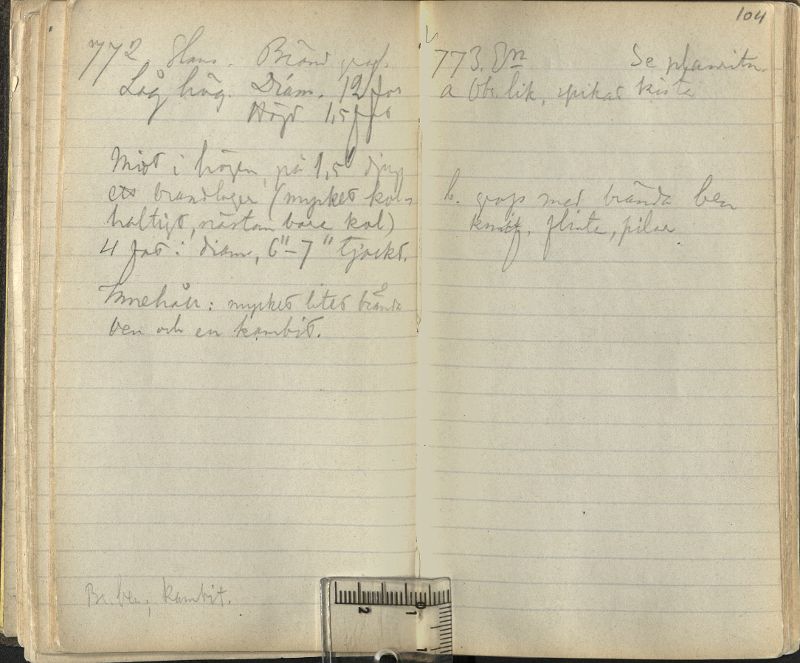 772 Hans. Bränd graf.
Låg hög. Diam. 12 fot
Höjd 1,5 fot
Midt i högen, på 1,5' djup
ett brandlager (mycket kol-
haltigt, nästan bara kol)
4 fot i diam, 6"-7" tjockt.
Innehåll: mycket litet brända
ben och en kambit.
Br. ben, kambit.
104
773. Se planritn.
a Obr. lik, spikar kista
b. grop med brända ben
knif, flinta, pilar
2 1 0
1